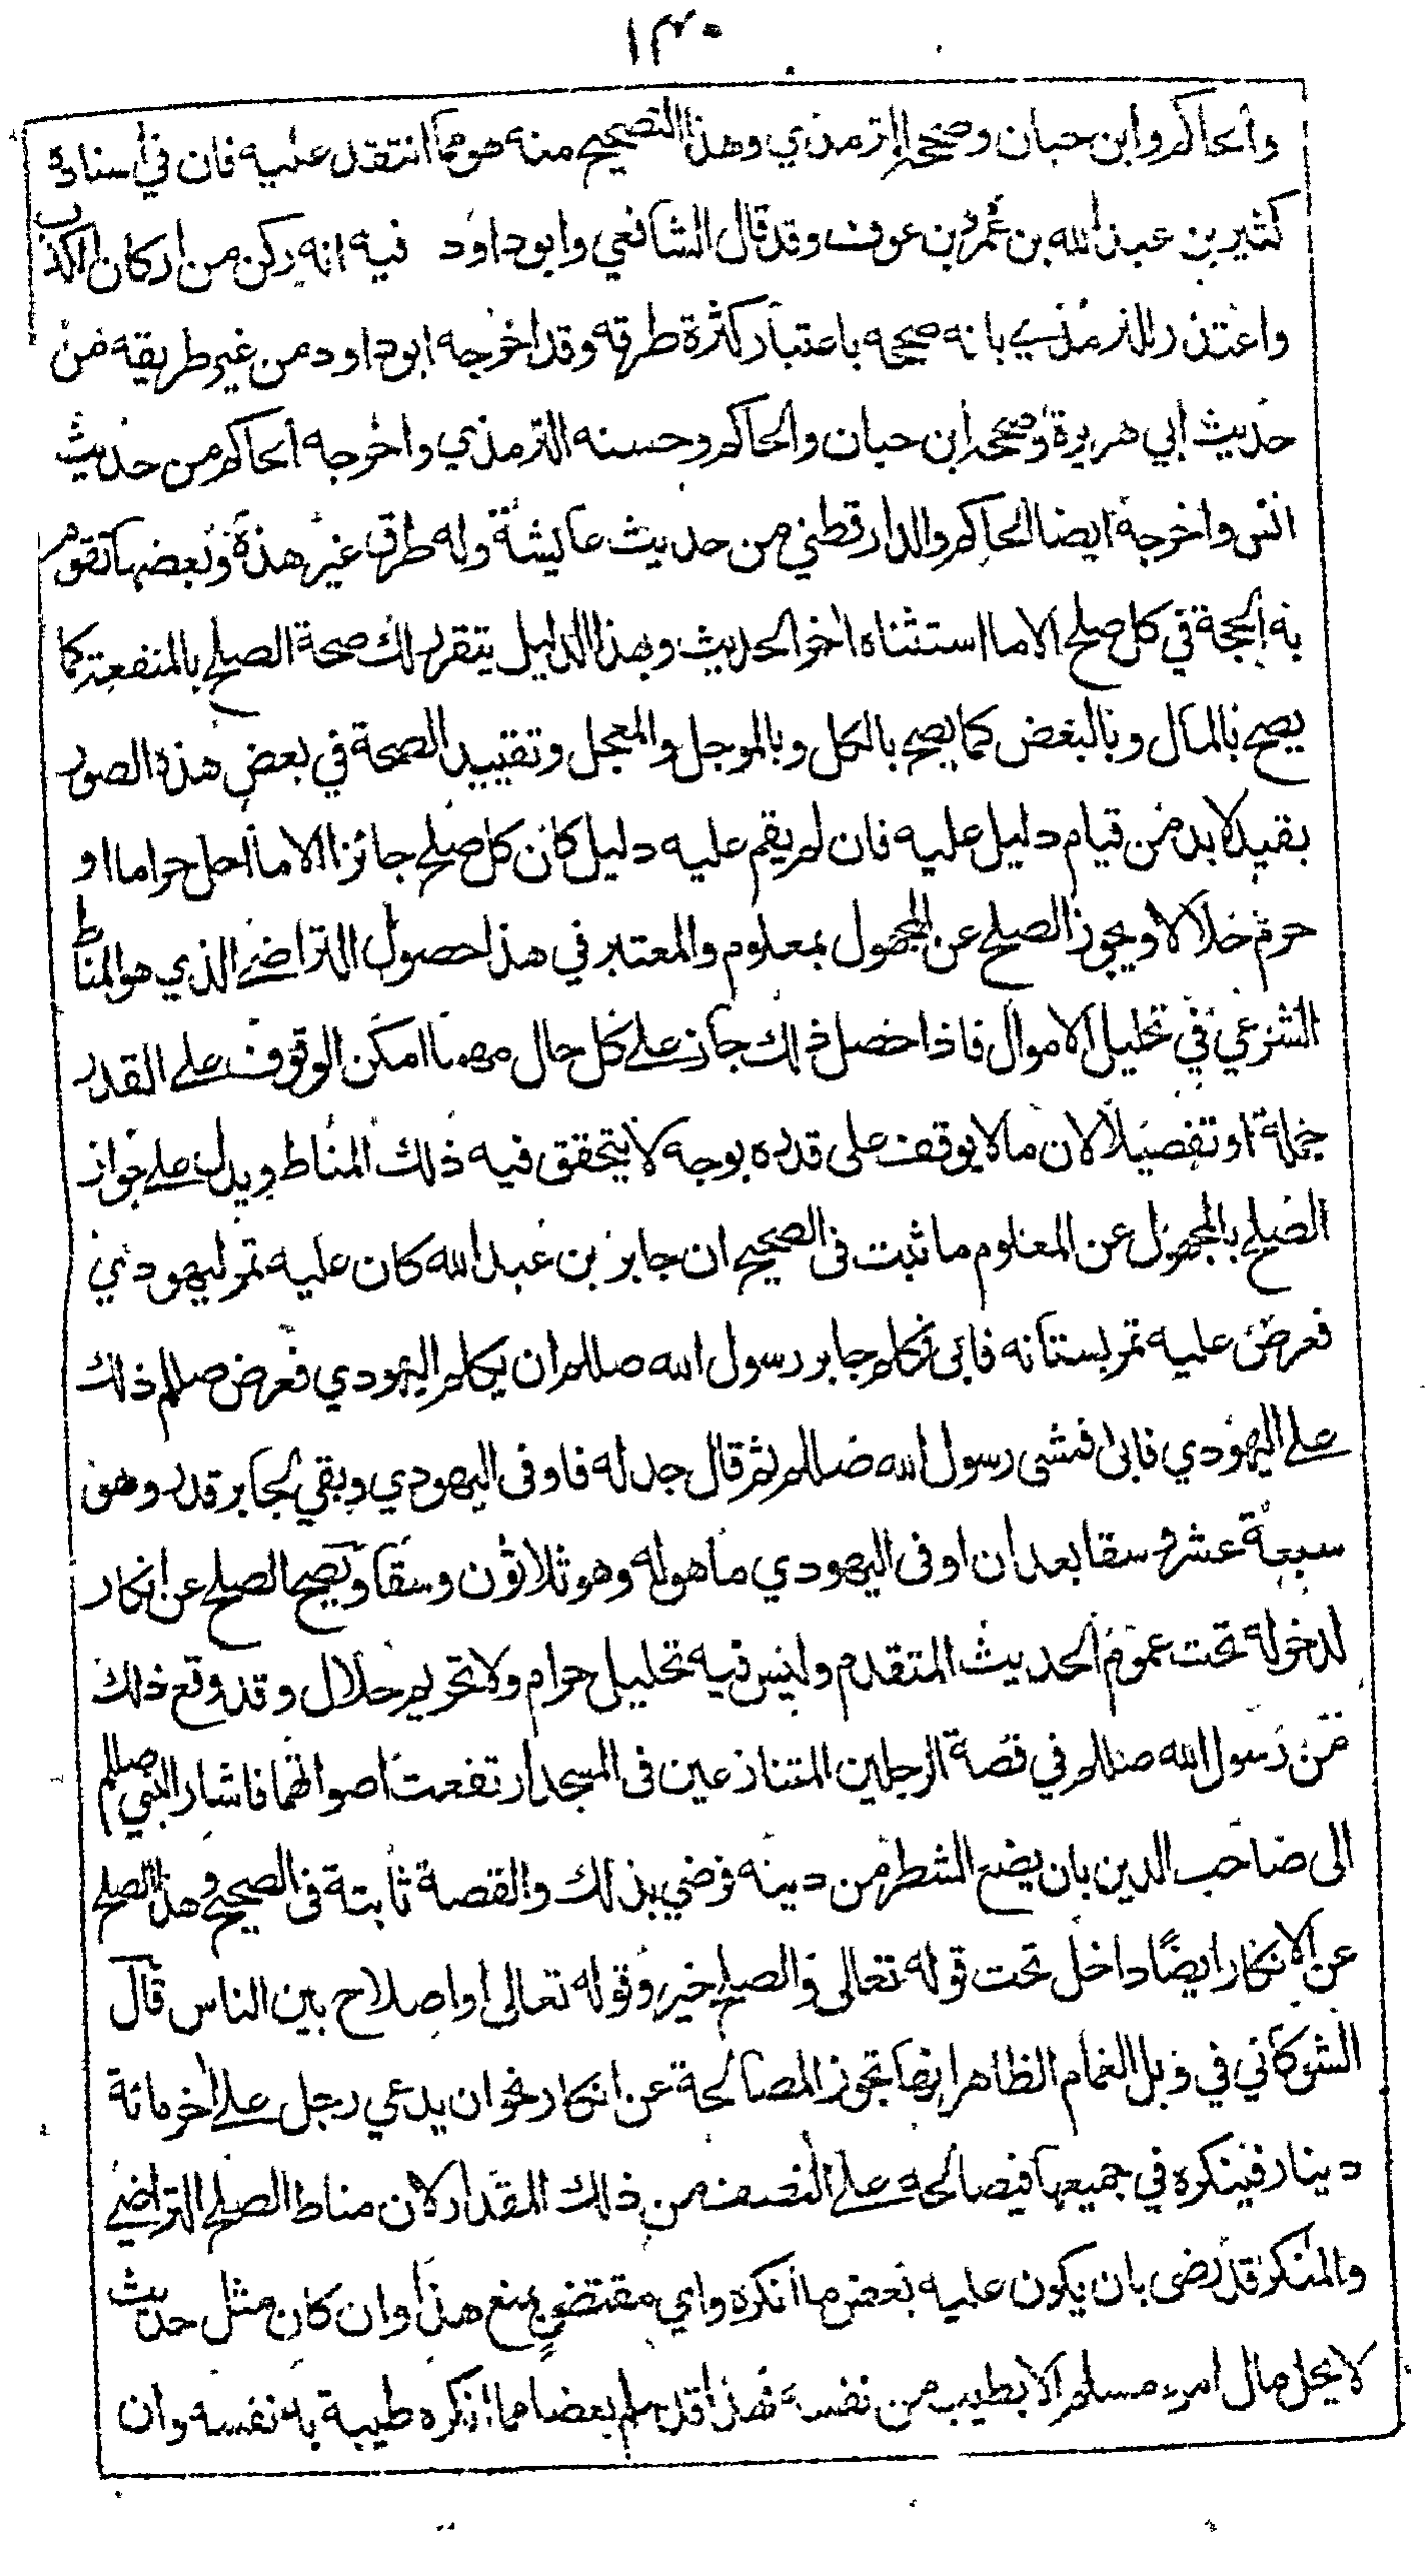 ١٣٠
والحاكم وابن حبان وصححه الترمذي وهذا التصحيح منه هو مما انتقد عليه فان في اسناده
كثير بن عبد الله بن عمرو بن عوف وقد قال الشافعي وابو داود فيه انه ركن من اركان الكذب
واعتذر للترمذي بانه صححه باعتبار كثرة طرقه وقد اخرجه ابو داود من غير طريقه من
حديث ابي هريرة وصححه ابن حبان والحاكم وحسنه الترمذي واخرجه الحاكم من حديث
انس واخرجه ايضا الحاكم والدارقطني من حديث عايشة وله طرق غير هذه وبعضها تقوم
به الحجة في كل صلح الا ما استثناه اخر الحديث وبهذا الدليل يتقرر لك صحة الصلح بالمنفعة كما
يصح بالمال وبالبعض كما يصح بالكل وبالموجل والمعجل وتقييد الصحة في بعض هذه الصور
بقيد لا بد من قيام دليل عليه فان لم يقم عليه دليل كان كل صلح جائزا الا ما احل حراما او
حرم حلالا ويجوز الصلح عن المجهول بمعلوم والمعتبر في هذا حصول التراضي الذي هو المناط
الشرعي في تحليل الاموال فاذا حصل ذلك جاز على كل حال مهما امكن الوقوف على القدر
جملة او تفصيلا لان ما لا يوقف على قدره بوجه لا يتحقق فيه ذلك المناط ويدل على جواز
الصلح بالمجهول عن المعلوم ما ثبت في الصحيح ان جابر بن عبد الله كان عليه تمر ليهودي
فعرض عليه تمر بستانه فابى فكلم جابر رسول الله صللم ان يكلم اليهودي فعرض صللم ذلك
على اليهودي فابى فمشى رسول الله صللم ثم قال جد له فاوفى اليهودي وبقي لجابر قدر وهو
سبعة عشر وسقا بعد ان اوفى اليهودي ما هو له وهو ثلاثون وسقا ويصح الصلح عن انكار
لدخوله تحت عموم الحديث المتقدم وليس فيه تحليل حرام ولا تحريم حلال وقد وقع ذلك
من رسول الله صللم في قصة الرجلين المتنازعين في المسجد ارتفعت اصواتهما فاشار النبي صللم
الى صاحب الدين بان يضع الشطر من دينه فرضي بذلك والقصة ثابتة في الصحيح وهذا الصلح
عن الانكار ايضًا داخل تحت قوله تعالى والصلح خير وقوله تعالى او اصلاح بين الناس قال
الشوكاني في وبل الغمام الظاهر انها تجوز المصالحة عن انكار نحو ان يدعي رجل على اخر مائة
دينار فينكره في جميعها فيصالحه على النصف من ذلك المقدار لان مناط الصلح التراضي
والمنكر قد رضى بان يكون عليه بعض ما انكره واي مقتضٍ لمنع هذا وان كان مثل حديث
لا يحل مال امرء مسلم الا بطيب من نفسه فهذا قد سلم بعضا مما انكره طيبة به نفسه وان